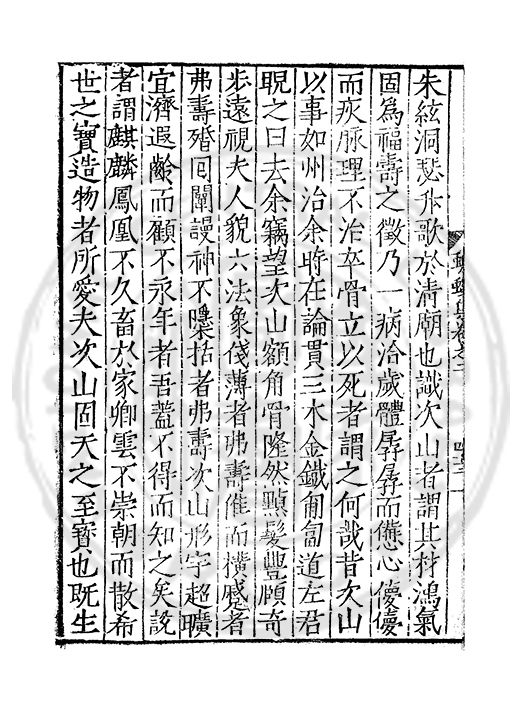 朱絃洞瑟升歌於清廟也識次山者謂其材鴻氣
固為福壽之徵乃一病洽歲體孱孱而憊心儽儽
而疾脉理不治卒骨立以死者謂之何哉昔次山
以事如州治余時在論貫三水金鐵匍匐道左君
睨之曰去余竊望次山額角骨隆然顯髮豐頤奇
步遠視夫人貌六法象俴薄者弗壽催而橫蹙者
弗壽殙囘闒謾神不櫽括者弗壽次山形宇超曠
宜濟遐齡而顧不永年者吾蓋不得而知之矣說
者謂麒麟鳳凰不久畜於家卿雲不崇朝而散希
世之寶造物者所愛夫次山固天之至寶也既生